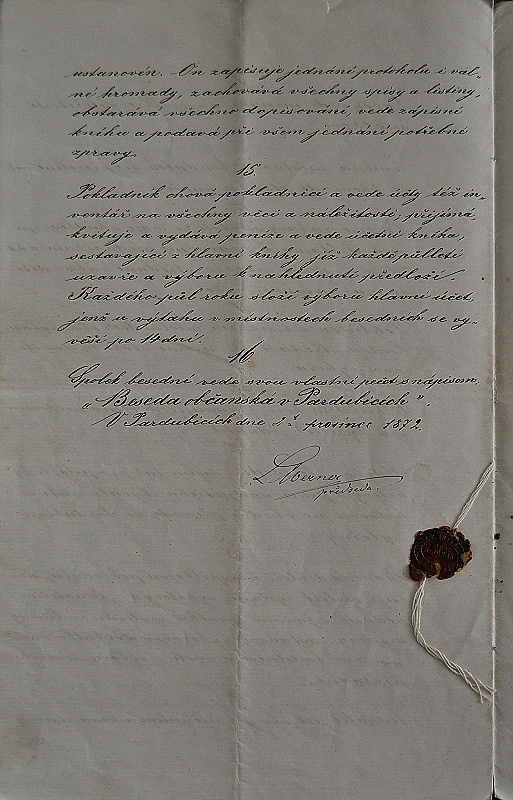 ustanovén. On zapisuje jednání protokolu i val-
né hromady, zachovává všechny spisy a listiny,
obstarává všechno dopisování, vede zápisní
knihu a podavá při všem jednání potřebné
zpravy.
15.
Pokladník chová pokladnici a vede účty též in-
ventář na všechny věci a náležitosti, přijímá,
kvituje a vydává peníze a vede účetní knihu,
sestavající z hlavní knihy, již každé půlletí
uzavře a výboru k nahlédnutí předloží.
Každého půl roku složí výboru hlavní účet,
jenž u výtahu v místnostech besedních se vy-
věsí po 14 dní.
16
Spolek besední vede svou vlastní pečeť s nápisem.
„Beseda občanská v Pardubicích".
V Pardubicích dne prosinec 1872.
předseda.